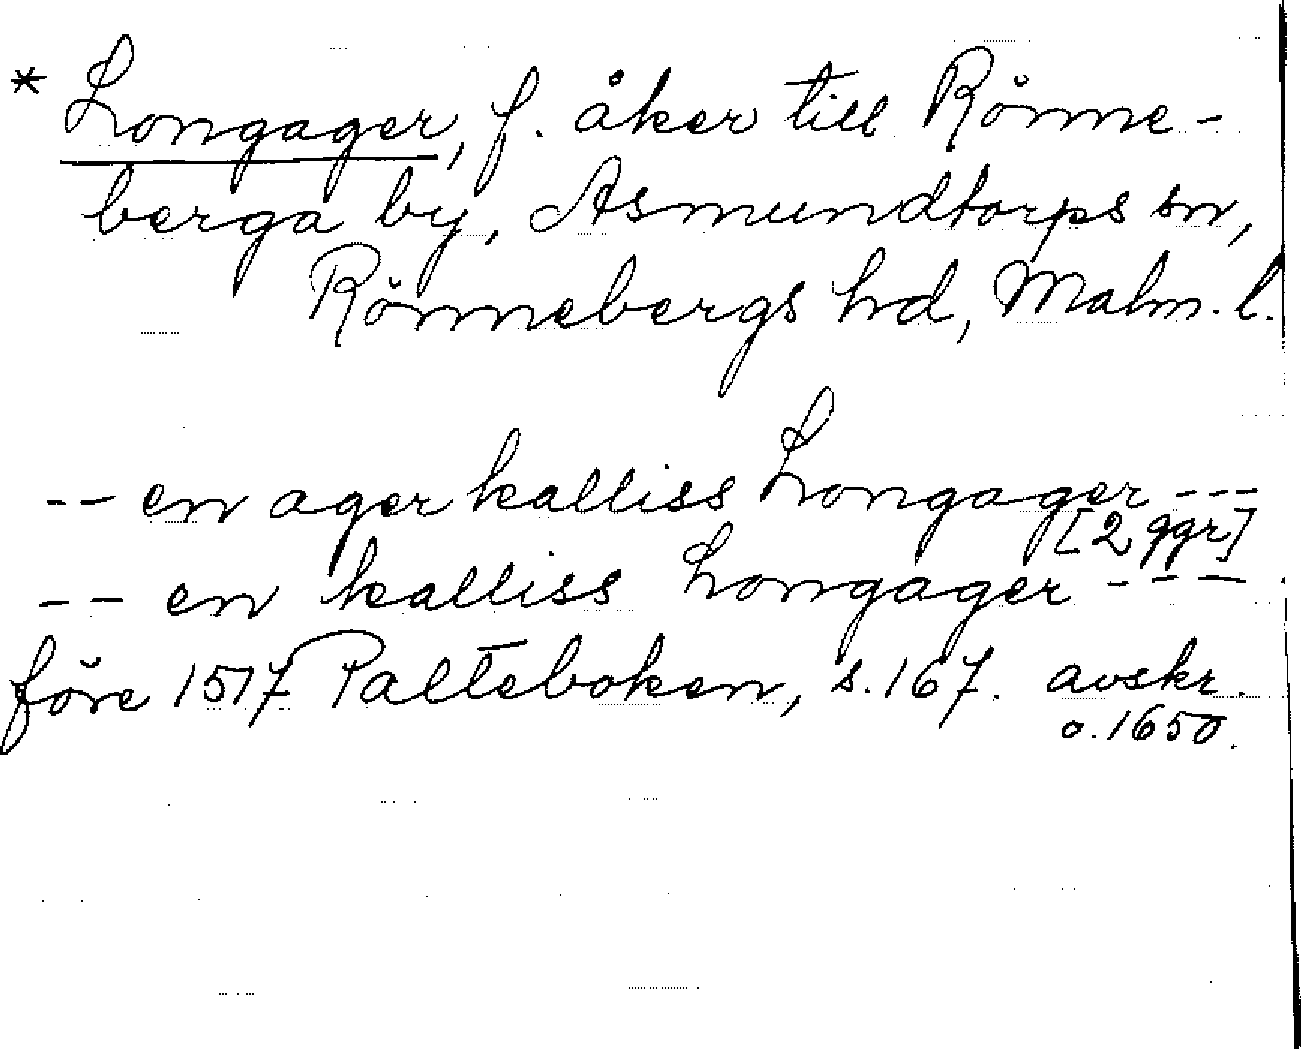 * Longager, f. åker till Rönne-
berga by, Asmundtorps sn,
Rönnebergs hd, Malm. l.
-- en ager kalliss Longager ---
[2 ggr]
-- en kalliss Longager ---
före 1517 Palteboken, s. 167. avskr.
o. 1650.